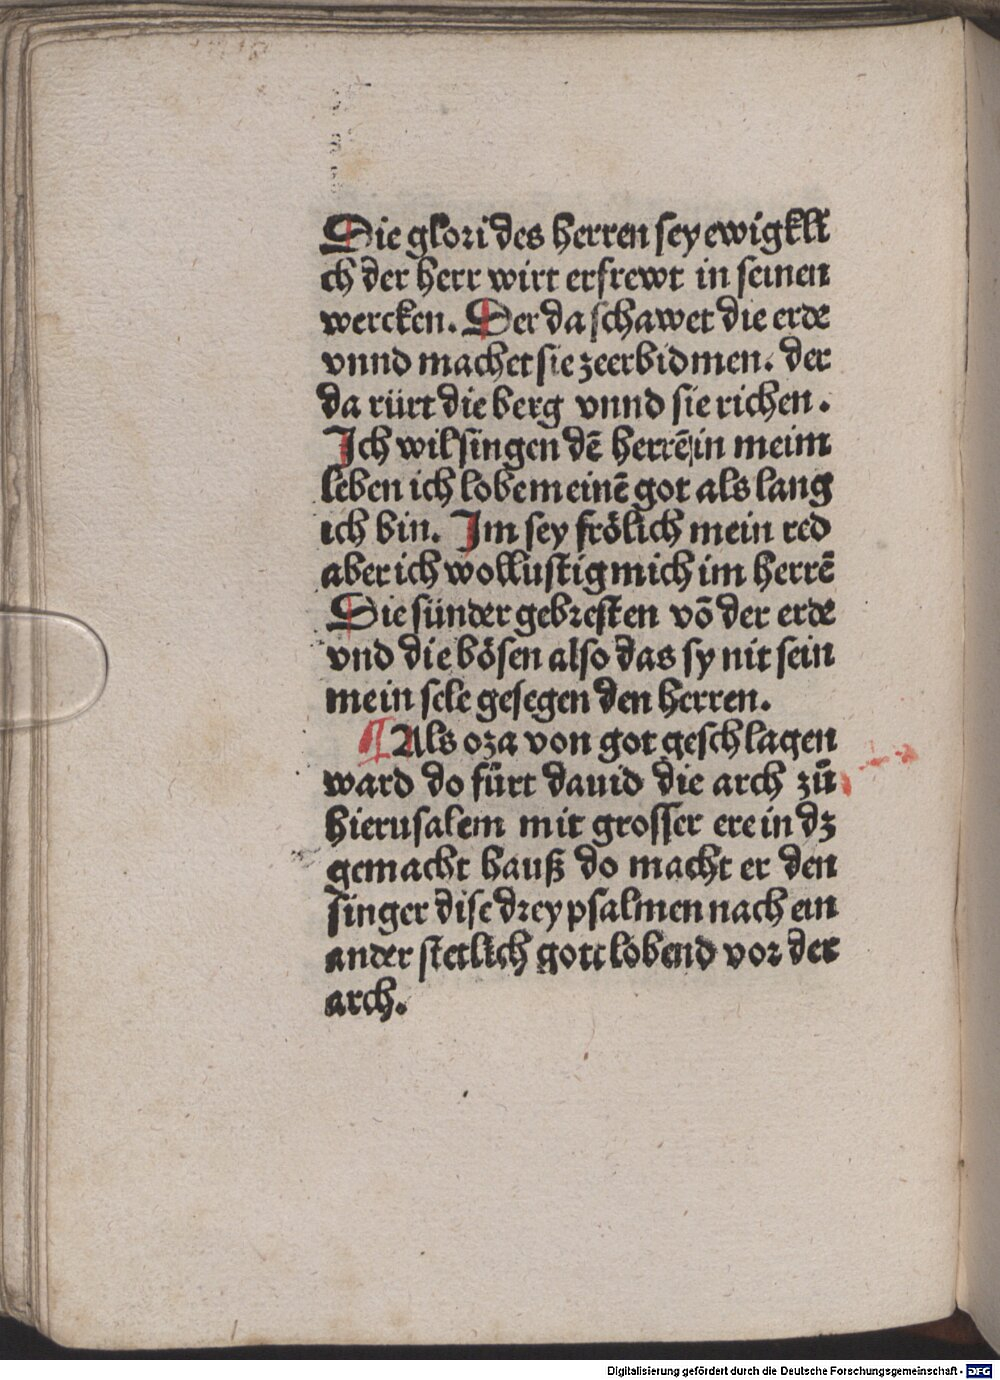 Die glori des herren sey ewigkli
ch der herr wirt erfrewt in seinen
wercken. Der da schawet die erde
vnnd machet sie zeerbidmen. der
da rürt die berg vnnd sie richen.
Ich wil singen dē herrē in meim
leben ich lobe meinē got als lang
ich bin. Im sey frölich mein red
aber ich wollustig mich im herrē
Die sünder gebresten vō der erde
vnd die bösen also das sy nit sein
mein sele gesegen den herren.
¶ Als oza von got geschlagen
ward do fürt dauid die arch zū
hierusalem mit grosser ere in dz
gemacht hauß do macht er den
singer dise drey psalmen nach ein
ander stetlich gott lobend vor der
arch.
Digitalisierung gefördert durch die Deutsche Forschungsgemeinschaft - DFG